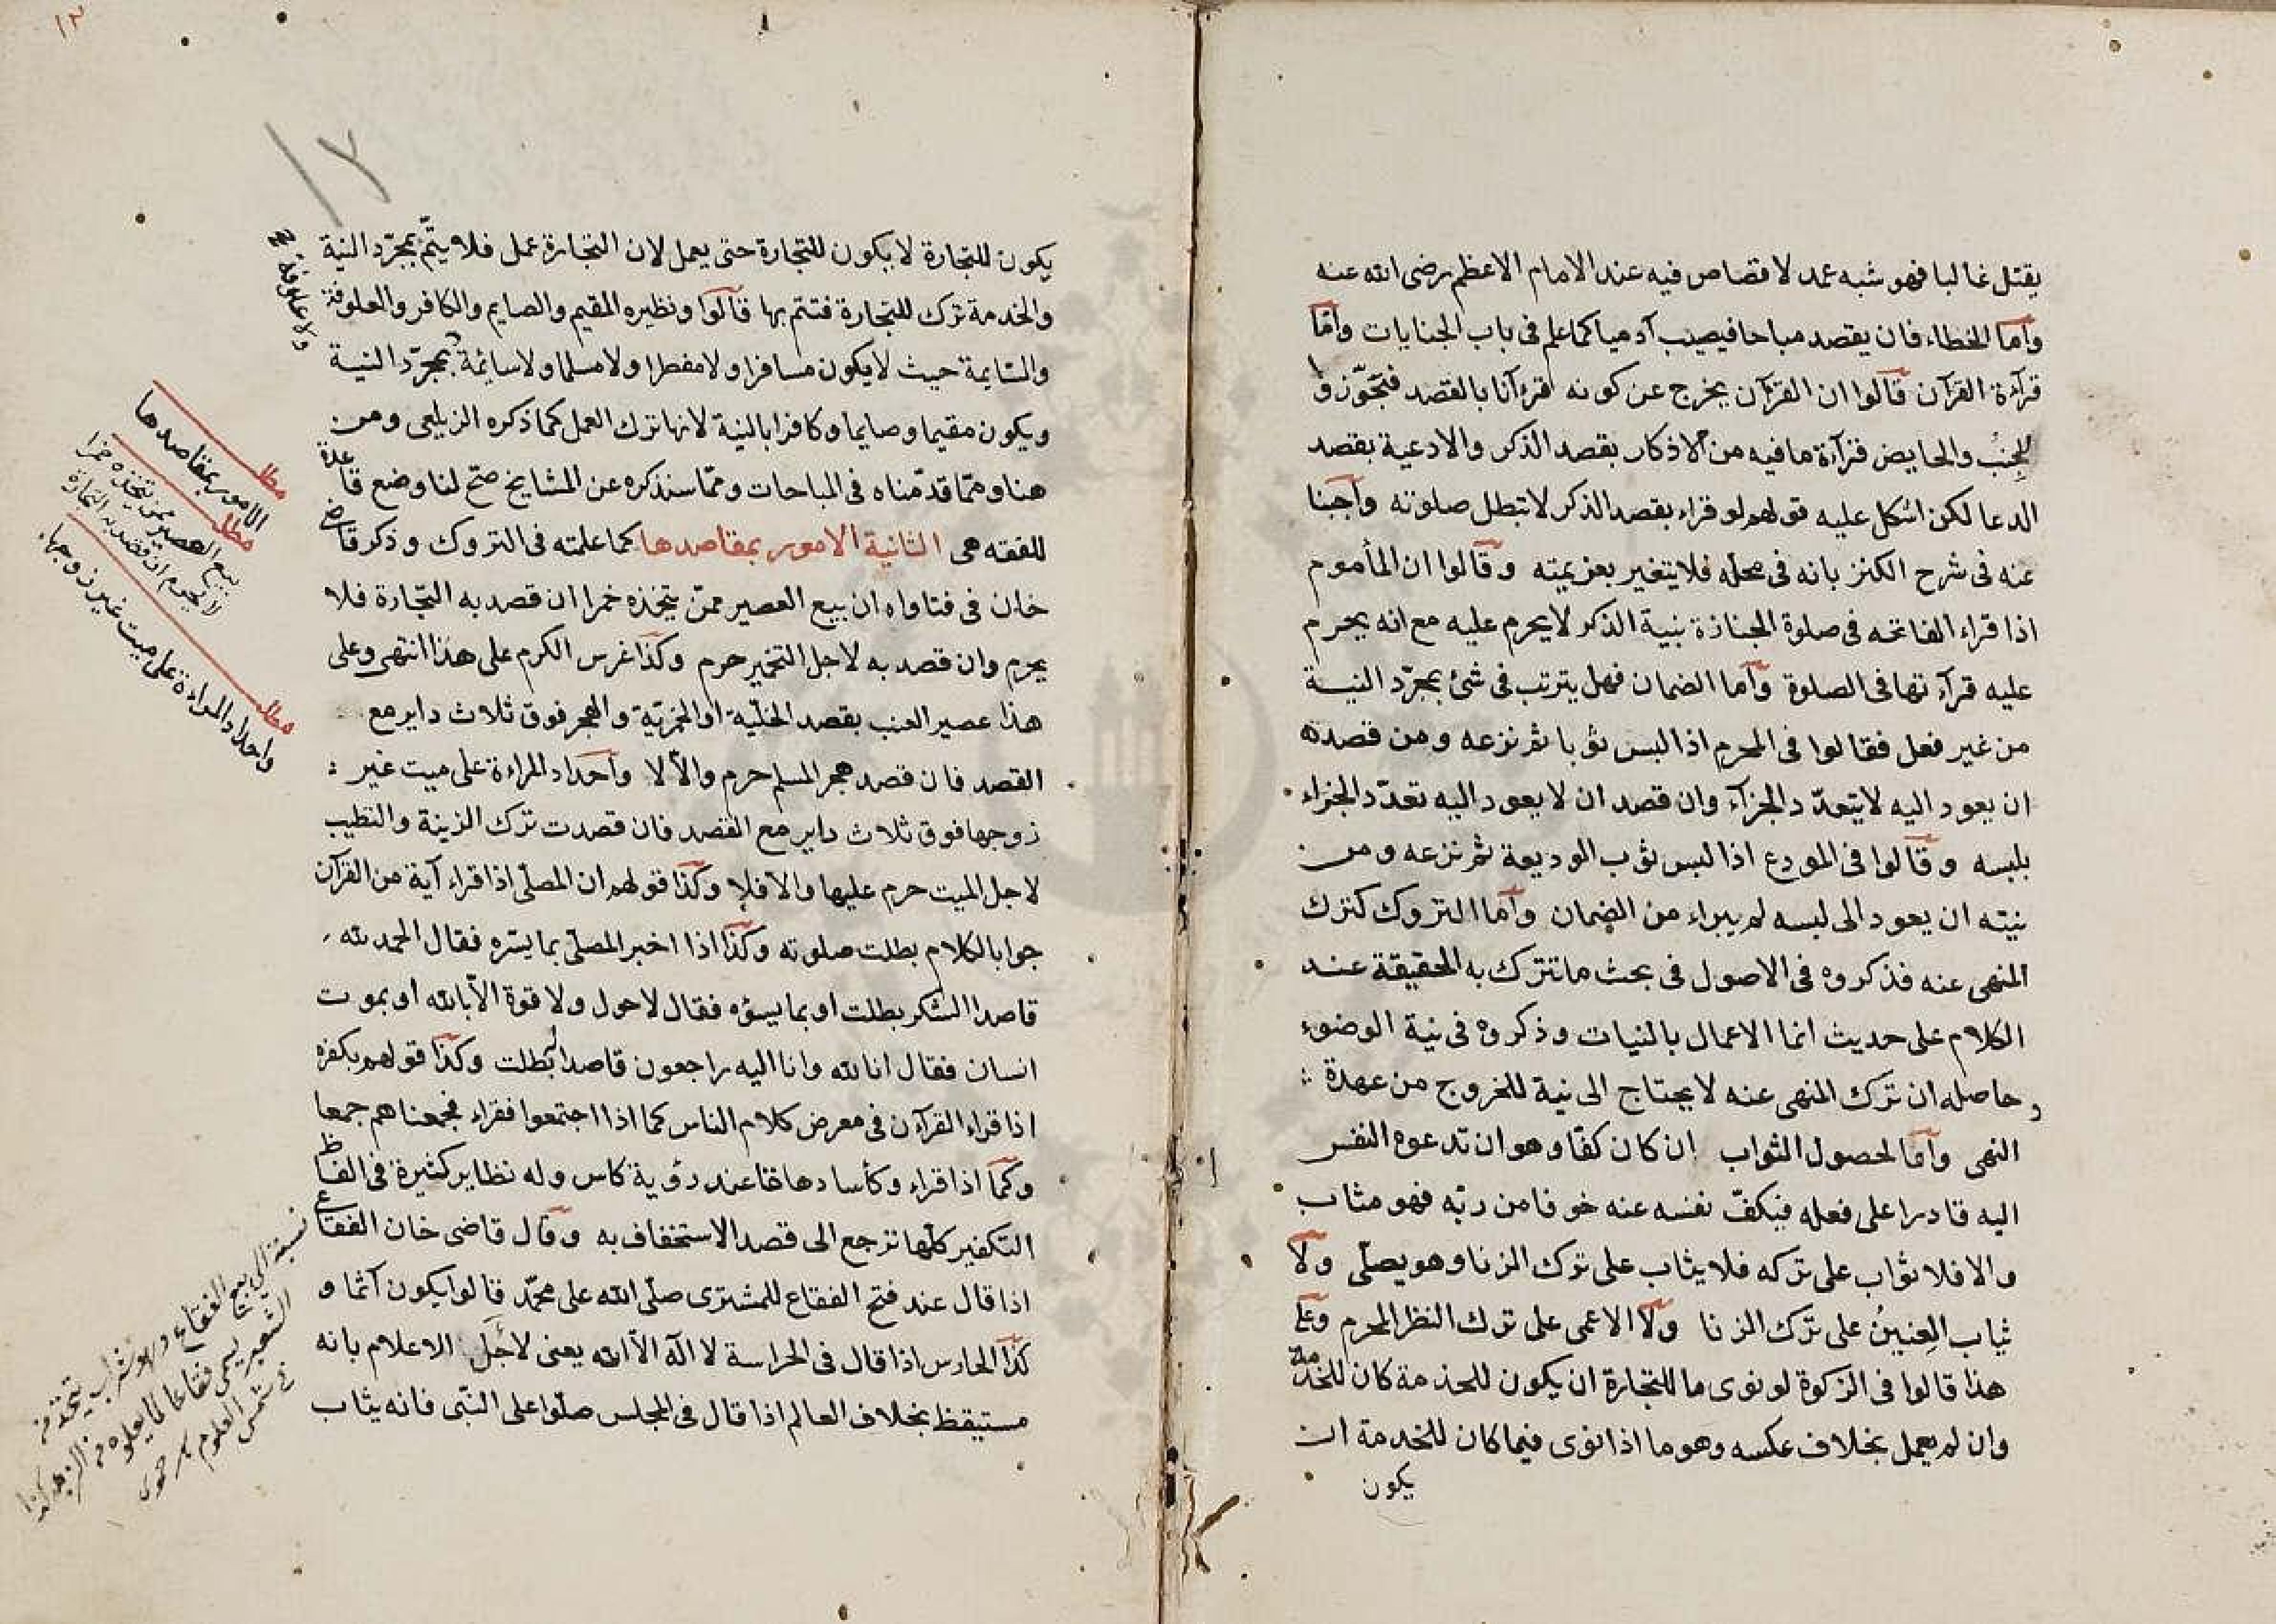 يقتل غالبا فهو شبه عمد لا قصاص فيه عند الامام الاعظم رضى الله عنه
وأما الخطاء فان يقصد مباحا فيصيب آدميا كما علم فى باب الجنايات وأما
قرآءة القرآن قالوا ان القرآن يخرج عن كونه قرءآنا بالقصد فجوّزوا
للجنب والحايض قرآءة ما فيه من الاذكار بقصد الذكر والادعية بقصد
الدعا لكن اشكل عليه قولهم لو قراء بقصد الذكر لا تبطل صلوته وأجبنا
عنه فى شرح الكنز بانه فى محله فلا يتغير بعزيمته وقالوا ان المأموم
اذا قراء الفاتحه فى صلوة الجنازة بنية الذكر لا يحرم عليه مع انه يحرم
عليه قرآءتها فى الصلوة وأما الضمان فهل يترتب فى شئ بمجرّد النيــة
من غير فعل فقالوا فى المحرم اذا لبس ثوبا ثم نزعه ومن قصده
ان يعود اليه لا يتعدّد الجزآء وان قصد ان لا يعود اليه تعدّد الجزاء
بلبسه وقالوا فى المودع اذا لبس ثوب الوديعة ثم نزعه ومن
نيته ان يعود الى لبسه لم يبراء من الضمان وأما التروك كترك
المنهى عنه فذكروه فى الاصول فى بحث ما تترك به الحقيقة عند
الكلام على حديث انما الاعمال بالنيات وذكروه فى نية الوضوء
وحاصله ان ترك المنهى عنه لا يحتاج الى نية للخروج من عهدة
النهى وأما لحصول الثواب ان كان كفّا وهو ان تدعوه النفس
اليه قادرا على فعله فيكفّ نفسه عنه خوفا من ربّه فهو مثاب
والا فلا ثواب على تركه فلا يثاب على ترك الزنا وهو يصلّى ولا
ثياب العِنينُ على ترك الزنا ولا الاعمى على ترك النظر المحرم وعلى
هذا قالوا فى الزكوة لو نوى ما للتجارة ان يكون للخدمة كان للخدمة
وان لم يعمل بخلاف عكسه وهو ما اذا نوى فيما كان للخدمة ان
يكون
١٢
١٢
يكون للتجارة لا يكون للتجارة حتى يعمل لان التجارة عمل فلا يتمّ بمجرّد النية
والخدمة ترك للتجارة فتتم بها قالوا ونظيره المقيم والصايم والكافر والعلوفة
والسّايمة حيث لا يكون مسافرا ولا مفطرا ولا مسلما ولا سائمة بمجرّد النيــة
ولا علوفة صح
ويكون مقيما وصايما وكافرا بالنية لانها ترك العمل كما ذكره الزيلعى ومن
هنا وممّا قدّمناه فى المباحات وممّا سنذكره عن المشايخ صحّ لنا وضع قاعدة
للفقه هى الثانية الامور بمقاصدها كما علمته فى التروك وذكر قاضى
خان فى فتاواه ان بيع العصير ممنّ يتخذه خمرا ان قصد به التّجارة فلا
يحرم وان قصد به لاجل التخمير حرم وكذا غرس الكرم على هذا انتهى وعلى
هذا عصير العنب بقصد الخلّية او الخمريّة والهجر فوق ثلاث داير مع
القصد فان قصد هجر المسلم حرم والّا لا وأحداد المراءة على ميت غير
زوجها فوق ثلاث داير مع القصد فان قصدت ترك الزينة والتطيب
لاجل الميت حرم عليها والا فلا وكذا قولهم ان المصلّى اذا قراء آية من القرآن
جوابا لكلام بطلت صلوته وكذا اذا اخبر المصلّى بما يسّره فقال الحمد لله
قاصدا الشكر بطلت او بما يسوءه فقال لا حول ولا قوة الّا بالله او بموت
انسان فقال انا لله وانا اليه راجعون قاصدا له بطلت وكذا قولهم بكفره
اذا قراء القرآن فى معرض كلام الناس كما اذا اجتمعوا فقراء فجمعناهم جمعا
وكما اذا قراء وكأسا دهاقا عند رؤية كاس وله نظاير كثيرة فى الفاظ
التكفير كلّها ترجع الى قصد الاستخفاف به وقال قاضى خان الفقاع
اذا قال عند فتح الفقاع للمشترى صلّى الله على محمّد قالوا يكون آثما و
كذا الحارس اذا قال فى الحراسة لا الٓه الّا الله يعنى لاجل الاعلام بانه
مستيقظ بخلاف العالم اذا قال فى المجلس صلّوا على النّبى فانه يثاب
مطلب
الامور بمقاصدها
مطلب
بيع العصير ممن يتخذه خمرا
لا يحرم ان قصد به التجارة
مطلب
واحداد المراءة على ميت غير زوجها
نسبة الى بيع الفقاع وهو شراب يتخذ من
الشعير يسمى فقاعا لما يعلوه من الزبد كذا
شمس العلوم حموى